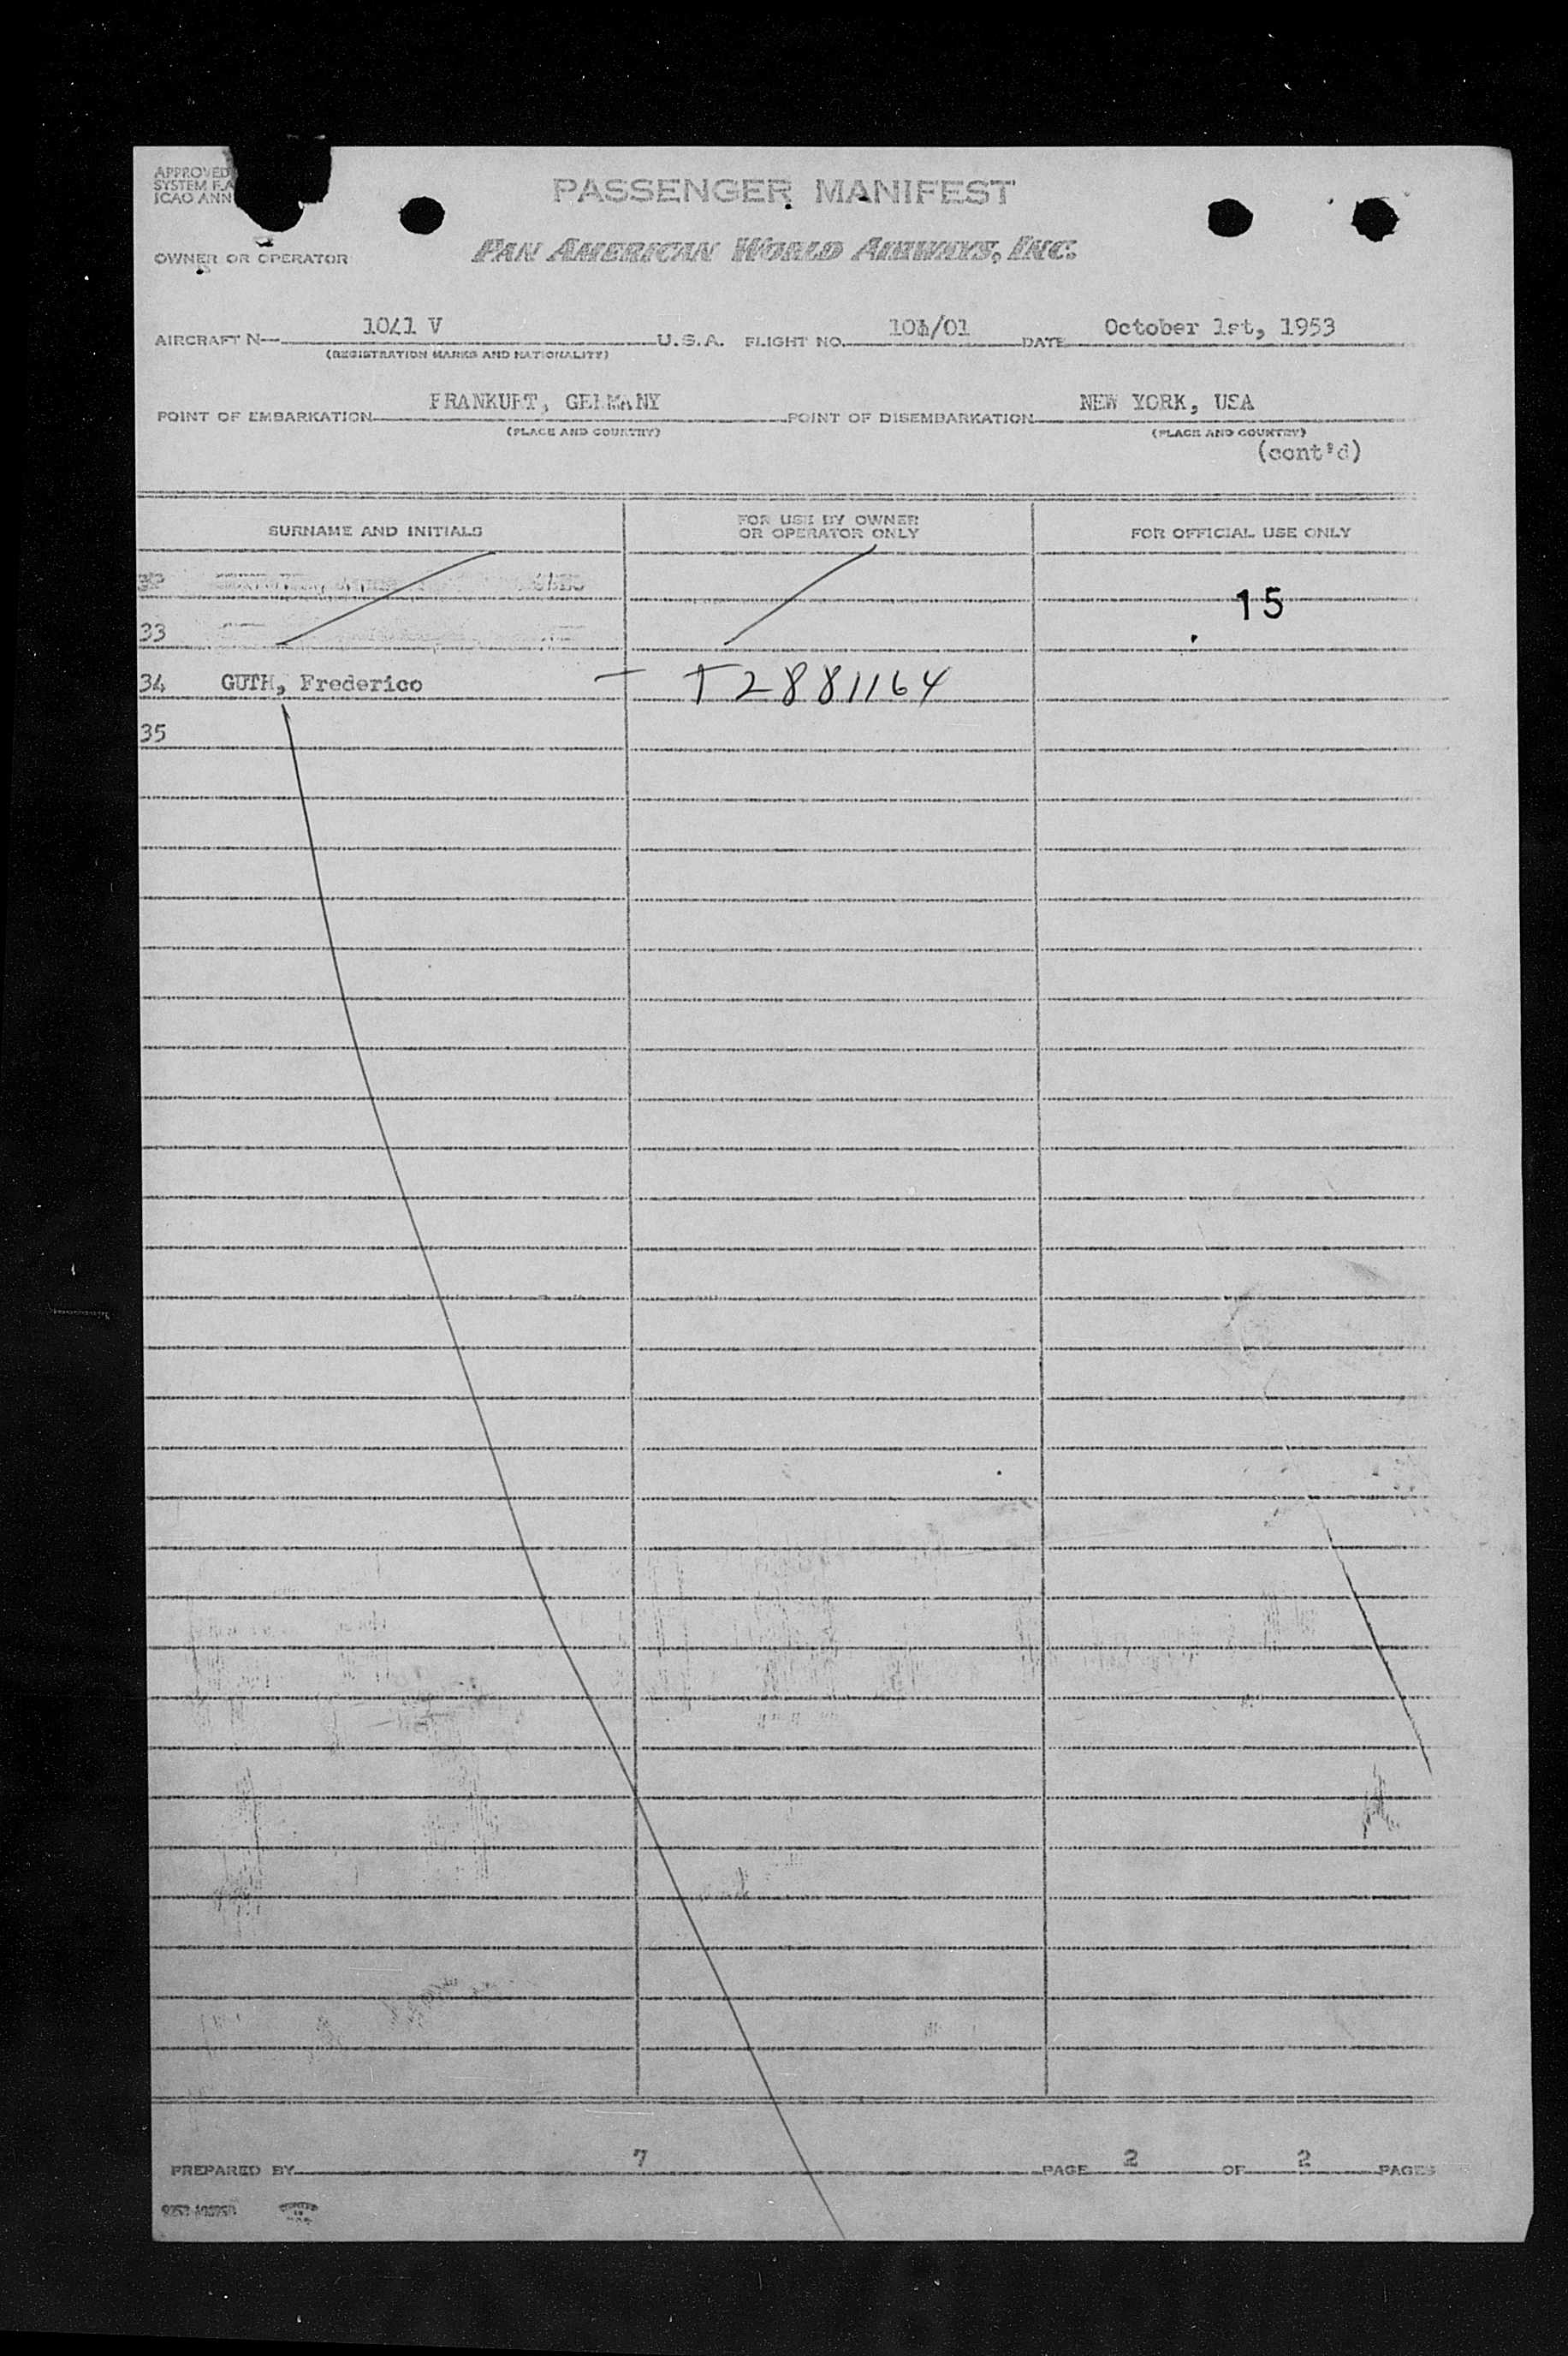 APPROVED
SYSTEM F.A
ICAO ANN
PASSENGER MANIFEST
OWNER OR OPERATOR
PAN AMERICAN WORLD AIRWAYS, INC.
AIRCRAFT N- 1041 V U.S.A. FLIGHT NO. /01 DATE October 1st, 1953
(REGISTRATION MARKS AND NATIONALITY)
POINT OF EMBARKATION FRANKURT, GERMANY POINT OF DISEMBARKATION NEW YORK, USA
(PLACE AND COUNTRY) (PLACE AND COUNTRY)
(cont'd)
SURNAME AND INITIALS FOR USE BY OWNER OR OPERATOR ONLY FOR OFFICIAL USE ONLY
15
33
34 GUTH, Frederico – T2881164
35
PREPARED BY 7 PAGE 2 OF 2 PAGES
PRINTED
IN